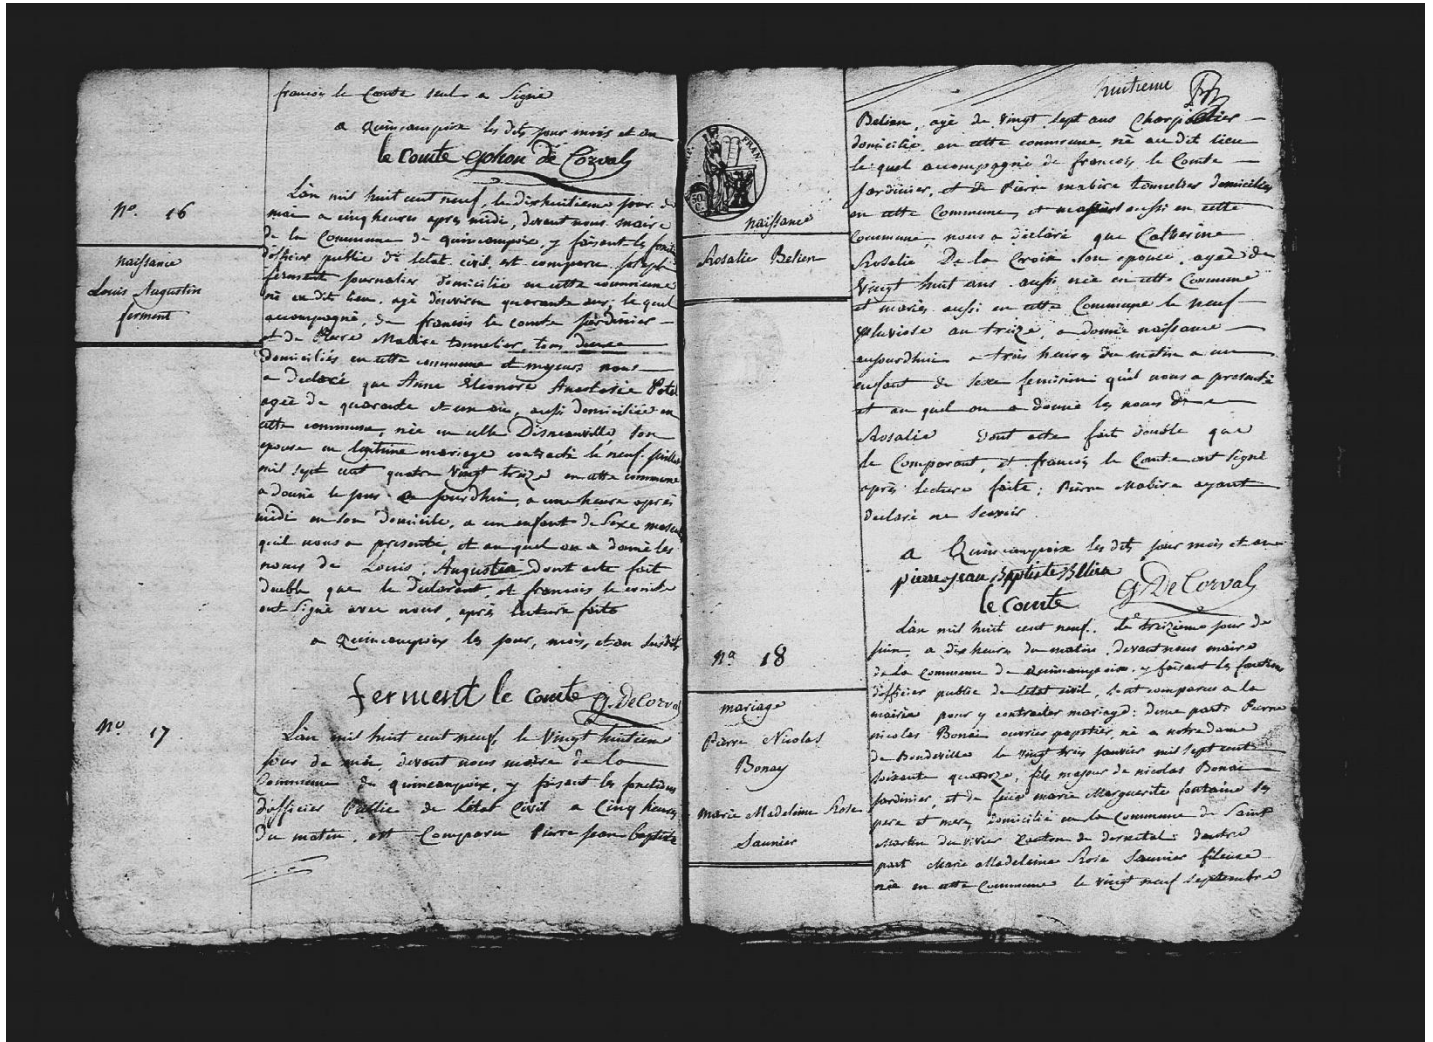 francois le Comte seul a Signé
a Quincampoix les dits jour mois et an
le Comte de Corval
N°. 16
naissance
Louis Augustin
ferment
L'an mil huit cent neuf, le dixhuitieme jour de
mai a cinq heures après midi, devant nous maire
de la Commune de quincampoix, y faisant les
d'officier public de l'etat civil, est comparu Joseph
ferment journalier domicilié en cette commune
né en dit lieu, agé d'environ quarante ans, le quel
accompagné, de francois le comte jardinier
et de Pierre Mabire tonnelier, tous deux
domiciliés en cette commune et majeurs nous
a declaré que Anne Eleonore Anastasie Potel
agée de quarante et un an, aussi domiciliée en
cette commune, née en celle D'isneauville, son
epouse en legitime mariage contracté le neuf juillet
mil sept cent quatre vingt treize en cette commune
a donné le jour aujourdhui, a une heure après
midi en son domicile, a un enfant de Sexe
qu'il nous a presenté, et au quel on a donné les
noms de Louis, Augustin dont acte fait
double que le declarant, et francois le comte
ont Signé avec nous, après lecture faite
a Quincampoix les jour, mois, et an susdits
ferment le comte g. DeCorval
N° 17
L'an mil huit cent neuf, le Vingt huitieme
jour de mai, devant nous maire de la
Commune de quincampoix, y faisant les fonctions
d'officier Public de L'etat Civil a Cinq heures
Du matin, est Comparu Pierre jean baptiste
huitieme
REP. FRAN.
naissance
Rosalie Belien
Belien, agé de Vingt Sept ans Charpentier
domicilié, en cette commune, né au dit lieu
le quel accompagné de francois le Comte
Jardinier, et de Pierre mabire tonnelier domiciliés
en cette Commune, et majeurs aussi en cette
Commune, nous a declaré que Catherine
Rosalie De la Croix Son epouse, agée de
Vingt huit ans, aussi née en cette Commune
et mariés aussi en cette Commune le neuf
pluviose an treize, a donné naissance
aujourdhui a trois heures du matin a un
enfant de Sexe feminin qu'il nous a presenté
et au quel on a donné les noms de
Rosalie dont acte fait double que
le Comparant, et francois le Comte ont Signé
après lecture faite; Pierre Mabire ayant
declaré ne scavoir
a Quincampoix les dits jour mois et an
pierre jean Baptiste Belien
le comte g. DeCorval
N° 18
mariage
Pierre Nicolas
Bonay
Marie Madeleine Rose
Saunier
L'an mil huit cent neuf, le treizieme jour de
juin, a dix heures du matin, devant nous maire
de la commune de Quincampoix y faisant les fonctions
d'officier public de l'etat civil, sont comparus a la
mairie pour y contracter mariage: d'une part Pierre
nicolas Bonai ouvrier papetier, né a notre dame
de Bondeville le vingt trois janvier mil sept cent
soixante quatorze, fils majeur de nicolas Bonai
Jardinier, et de feue marie Marguerite fontaine ses
pere et mere, domicilié en la commune de Saint
Martin du vivier Canton de dernetal: d'autre
part Marie Madeleine Rose Saunier fileuse
née en cette Commune le vingt neuf Septembre